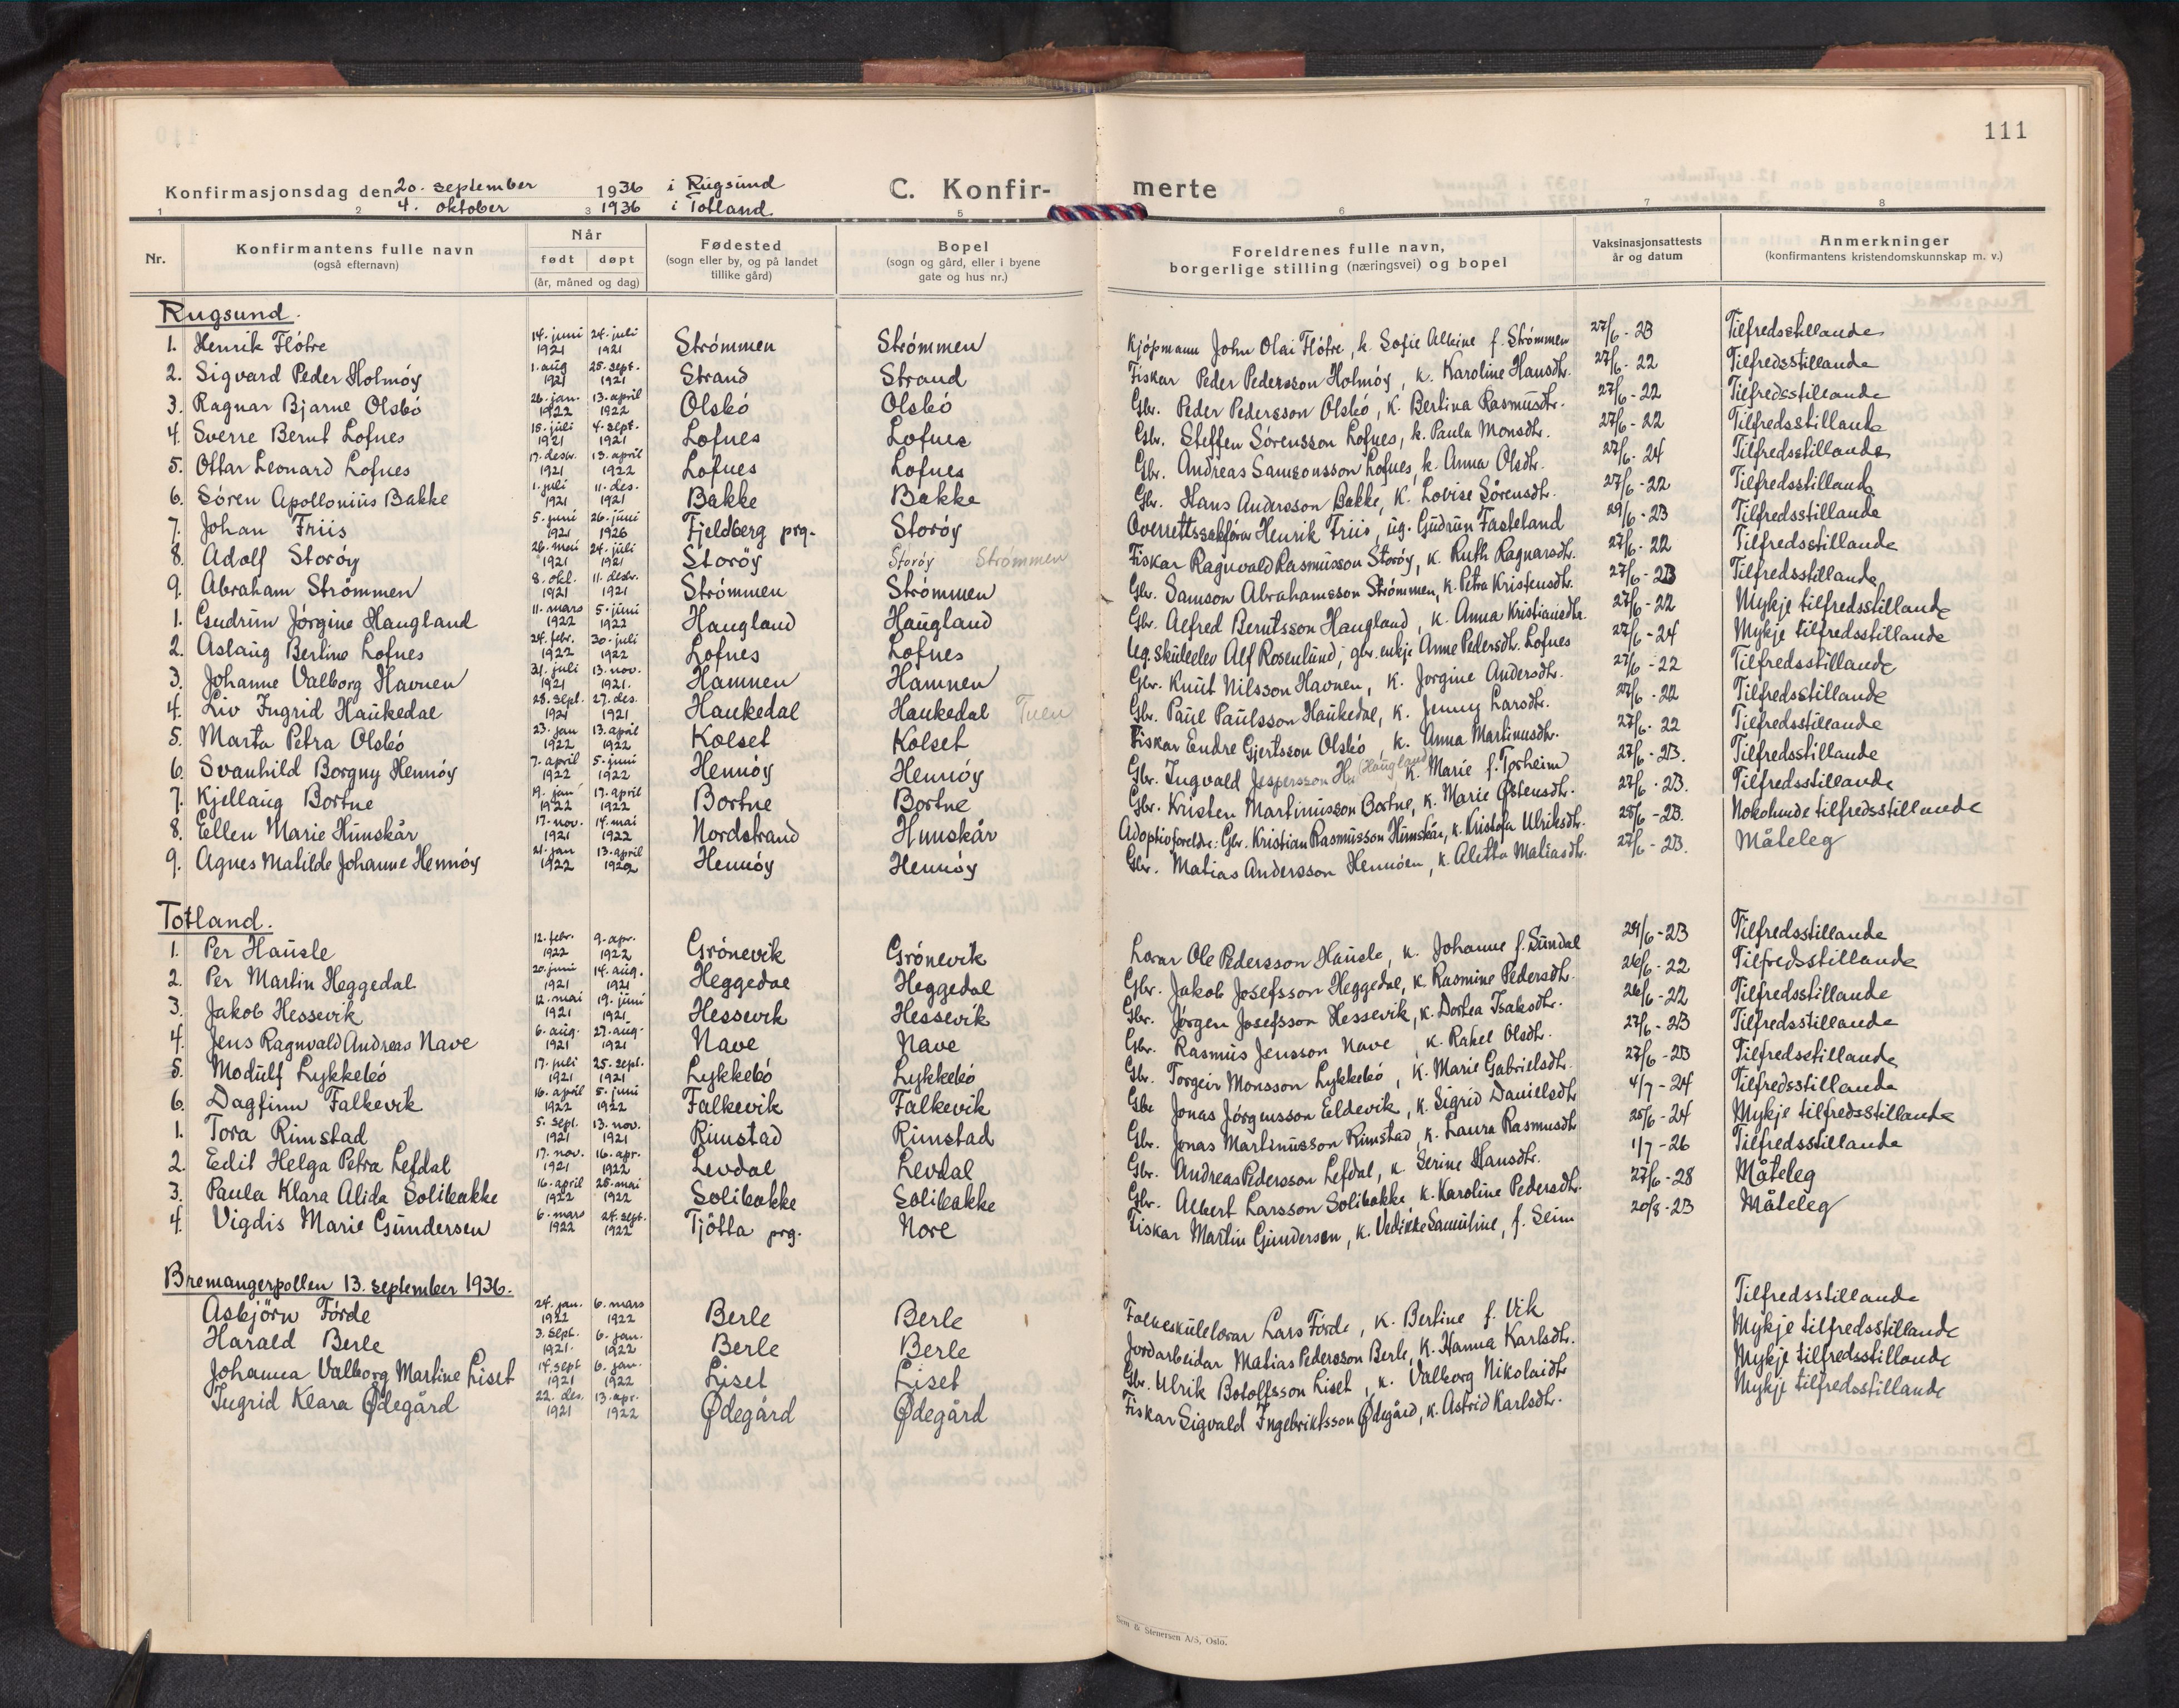 111
Konfirmasjonsdag den 20. september 1936 i Rugsund C. Konfir- merte
4. oktober 1936 i Totland
1 2 3 5 6 7 8
Nr. Konfirmantens fulle navn (også efternavn) Når født døpt (år, måned og dag) Fødested (sogn eller by, og på landet tillike gård) Bopel (sogn og gård, eller i byene gate og hus nr.) Foreldrenes fulle navn, borgerlige stilling (næringsvei) og bopel Vaksinasjonsattests år og datum Anmerkninger (konfirmantens kristendomskunnskap m. v.)
Rugsund.
1. Henrik Flótre 14. juni 1921 24. juli 1921 Strómmen Strómmen Kjópmann John Olai Flótre, k. Sofie Alvine f. Strómmen 27/6 - 23 Tilfredsstillande
2. Sigvard Peder Holmóy 1. aug 1921 25. sept. 1921 Strand Strand Fiskar Peder Pedersson Holmóy, k. Karoline Hansdtr. 27/6 - 22 Tilfredsstillande
3. Ragnar Bjarne Olsbó 26. jan. 1922 13. april 1922 Olsbó Olsbó Gbr. Peder Pedersson Olsbó, k. Bertina Rasmusdtr. 27/6 - 22 Tilfredsstillande
4. Sverre Bernt Lofnes 15. juli 1921 4. sept. 1921 Lofnes Lofnes Gbr. Steffen Sórensson Lofnes, k. Paula Monsdtr. 27/6 - 22 Tilfredsstillande
5. Ottar Leonard Lofnes 17. desbr. 1921 13. april 1922 Lofnes Lofnes Gbr. Andreas Samsonsson Lofnes, k. Anna Olsdtr. 27/6 - 24 Tilfredsstillande
6. Sóren Apollonius Bakke 1. juli 1921 11. des. 1921 Bakke Bakke Gbr. Hans Andersson Bakke, k. Lovise Sórensdtr. 27/6 - 22 Tilfredsstillande
7. Johan Friis 5. juni 1921 26. juni 1926 Fjeldberg prg. Storóy Overrettssakfórar Henrik Friis, ug. Gudrun Fasteland 29/6 - 23 Tilfredsstillande
8. Adolf Storóy 26. mai 1921 24. juli 1921 Storóy Storóy Strømmen Fiskar Ragnvald Rasmusson Storóy, k. Ruth Ragnarsdtr. 27/6 - 22 Tilfredsstillande
9. Abraham Strómmen 8. okt. 1921 11. desbr. 1921 Strómmen Strómmen Gbr. Samson Abrahamsson Strómmen, k. Petra Kristensdtr. 27/6 - 23 Tilfredsstillande
1. Gudrun Jórgine Haugland 11. mars 1922 5. juni 1922 Haugland Haugland Gbr. Alfred Berntsson Haugland, k. Anna Kristiansdtr. 27/6 - 22 Mykje tilfredsstillande
2. Aslaug Bertine Lofnes 24. febr. 1922 30. juli 1922 Lofnes Lofnes Ug. skuleelev Alf Rosenlund; gbr. enkje Anne Pedersdtr. Lofnes 27/6 - 24 Mykje tilfredsstillande
3. Johanne Valborg Havnen 31. juli 1921 13. nov. 1921. Hamnen Hamnen Gbr. Knut Nilsson Havnen, k. Jorgine Andersdtr. 27/6 - 22 Tilfredsstillande
4. Liv Ingrid Haukedal 28. sept. 1921 27. des. 1921 Haukedal Haukedal Tuen Gbr. Paul Paulsson Haukedal, k. Jenny Larsdtr. 27/6 - 22 Tilfredsstillande
5. Marta Petra Olsbó 23. jan 1922 13. april 1922 Kolset Kolset Fiskar Endre Gjertsson Olsbó, k. Anna Martinusdtr. 27/6 - 22 Tilfredsstillande
6. Svanhild Borgny Hennóy 7. april 1922 5. juni 1922 Hennóy Hennóy Gbr. Ingvald Jespersson (Haugland) k. Marie f. Torheim 27/6 - 23. Tilfredsstillande
7. Kjellaug Bortne 19. jan 1922 17. april 1922 Bortne Bortne Gbr. Kristen Martinusson Bortne, k. Marie Østensdtr. 27/6 - 23. Tilfredsstillande
8. Ellen Marie Hunskår 17. nov. 1921 14. mai 1922 Nordstrand Hunskår Adoptivforeldre: Gbr. Kristian Rasmusson Hunskår, k. Kristofa Ulriksdtr. 25/6 - 23. Nokolunde tilfredsstillande
9. Agnes Matilde Johanne Hennóy 21. jan 1922 13. april 1922 Hennóy Hennóy Gbr. Matias Andersson Hennóen, k. Aletta Matiasdtr. 27/6 - 23. Måteleg
Totland.
1. Per Hausle 12. febr. 1922 9. apr. 1922 Grónevik Grónevik Lærar Ole Pedersson Hausle, k. Johanne f. Sundal 29/6 - 23 Tilfredsstillande
2. Per Martin Heggedal 20. juni 1921 14. aug. 1921 Heggedal Heggedal Gbr. Jakob Josefsson Heggedal, k. Rasmine Pedersdtr. 26/6 - 22 Tilfredsstillande
3. Jakob Hessevik 12. mai 1921 19. juni 1921 Hessevik Hessevik Gbr. Jórgen Josefsson Hessevik, k. Dortea Isaksdtr. 26/6 - 22 Tilfredsstillande
4. Jens Ragnvald Andreas Nave 6. aug. 1921 27. aug. 1921 Nave Nave Gbr. Rasmus Jensson Nave, k. Rakel Olsdtr. 27/6 - 23 Tilfredsstillande
5. Modulf Lykkebó 17. juli 1921 25. sept. 1921 Lykkebó Lykkebó Gbr. Torgeir Monsson Lykkebó, k. Marie Gabrielsdtr. 27/6 - 23 Tilfredsstillande
6. Dagfinn Falkevik 16. april 1922 5. juni 1922 Falkevik Falkevik Gbr Jonas Jórgensson Eldevik, k. Sigrid Danielsdtr 4/7 - 24 Tilfredsstillande
1. Tora Rimstad 5. sept. 1921 13. nov. 1921 Rimstad Rimstad Gbr. Jonas Martinusson Rimstad, k. Laura Rasmusdtr 25/6 - 24 Mykje tilfredsstillande
2. Edit Helga Petra Lefdal 17. nov. 1921 16. apr. 1922 Levdal Levdal Gbr. Andreas Pedersson Lefdal, k. Serine Hansdtr. 1/7 - 26 Tilfredsstillande
3. Paula Klara Alida Solibakke 16. april 1922 28. mai 1922 Solibakke Solibakke Gbr. Albert Larsson Solibakke k. Karoline Pedersdtr. 27/6 - 28 Måteleg
4. Vigdis Marie Gundersen 6. mars 1922 24. sept. 1922 Tjötta prg. Nore Fiskar Martin Gundersen, k. Vedikke Samuline, f. Seim 20/8 - 23 Måteleg
Bremangerpollen 13. september 1936.
Asbjörn Förde 24. jan. 1922 6. mars 1922 Berle Berle Folkeskulelærar Lars Förde, k. Bertine f. Vik Tilfredsstillande
Harald Berle 3. sept. 1921. 6. jan. 1922 Berle Berle Jordarbeidar Matias Pedersson Berle, k. Hanna Karlsdtr. Mykje tilfredsstillande
Johanna Valborg Martine Liset 14. sept 1921 6. jan. 1922 Liset Liset Gbr. Ulrik Botolfsson Liset, k. Valborg Nikolaidtr Mykje tilfredsstillande
Ingrid Klara Ødegård 22. des. 1921 13. apr. 1922 Ødegård Ødegård Fiskar Sigvald Ingebriktsson Ødegård, k. Astrid Karlsdtr. Mykje tilfredsstillande
Sem & Stenersen A/S, Oslo.